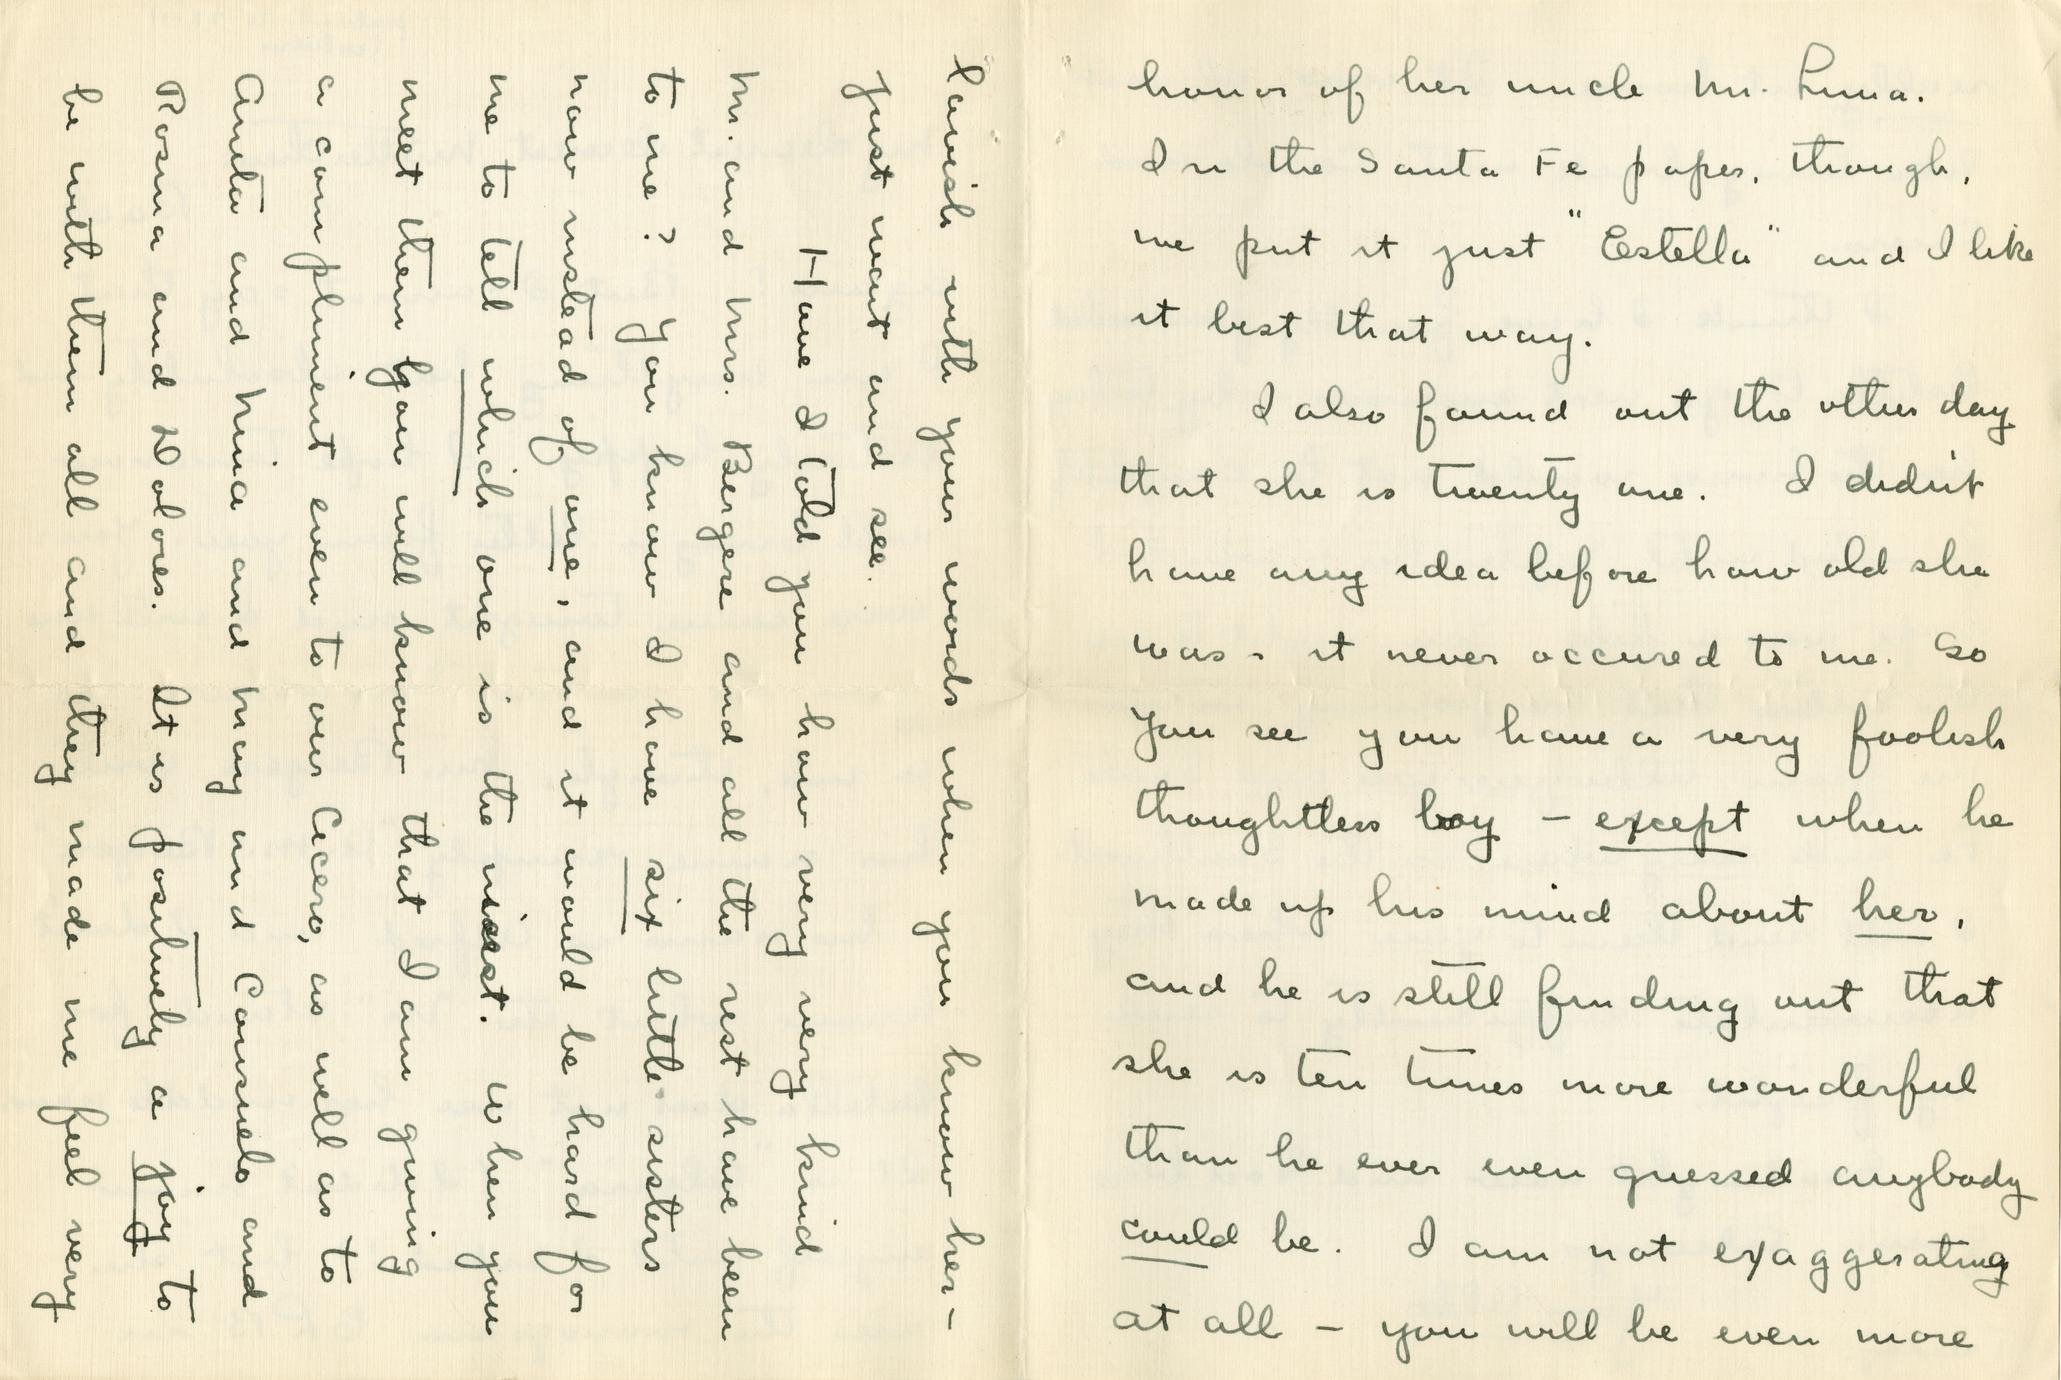 honor of her uncle Mr. Luna.
In the Santa Fe paper, though,
we put it just "Estella" and I like
it best that way.
I also found out the other day
that she is twenty one. I didn't
have any idea before how old she
was - it never occured to me. So
you see you have a very foolish
thoughtless boy - except when he
made up his mind about her,
and he is still finding out that
she is ten times more wonderful
than he ever even guessed anybody
could be. I am not exaggerating
at all - you will be even more
lavish with your words when you know her -
Just wait and see.
Have I told you how very very kind
Mr. and Mrs. Bergere and all the rest have been
to me? You know I have six little sisters
now instead of one, and it would be hard for
me to tell which one is the nicest. When you
meet them you will know that I am giving
a compliment even to our Cicero, as well as to
Anita and Nina and May and Consuelo and
Rosina and Dolores. It is positively a joy to
be with them all and they made me feel very